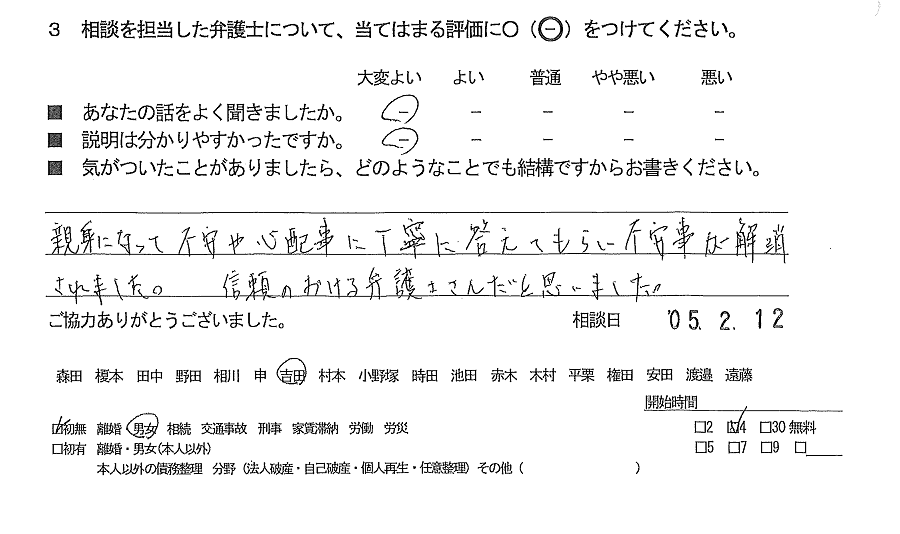 3 相談を担当した弁護士について、当てはまる評価に○(㊀)をつけてください。
大変よい よい 普通 やや悪い 悪い
■ あなたの話をよく聞きましたか。 − − − − −
■ 説明は分かりやすかったですか。 − − − − −
■ 気がついたことがありましたら、どのようなことでも結構ですからお書きください。
親身になって不安や心配事に丁寧に答えてもらい不安事が解消
されました。 信頼のおける弁護士さんだと思いました。
ご協力ありがとうございました。 相談日 '05. 2. 12
森田 榎本 田中 野田 相川 申 吉田 村本 小野塚 時田 池田 赤木 木村 平栗 権田 安田 渡邉 遠藤
開始時間
☑初無 離婚・男女 相続 交通事故 刑事 家賃滞納 労働 労災 □2 ☑4 □30無料
□初有 離婚・男女(本人以外) □5 □7 □9 □
本人以外の債務整理 分野(法人破産・自己破産・個人再生・任意整理)その他( )